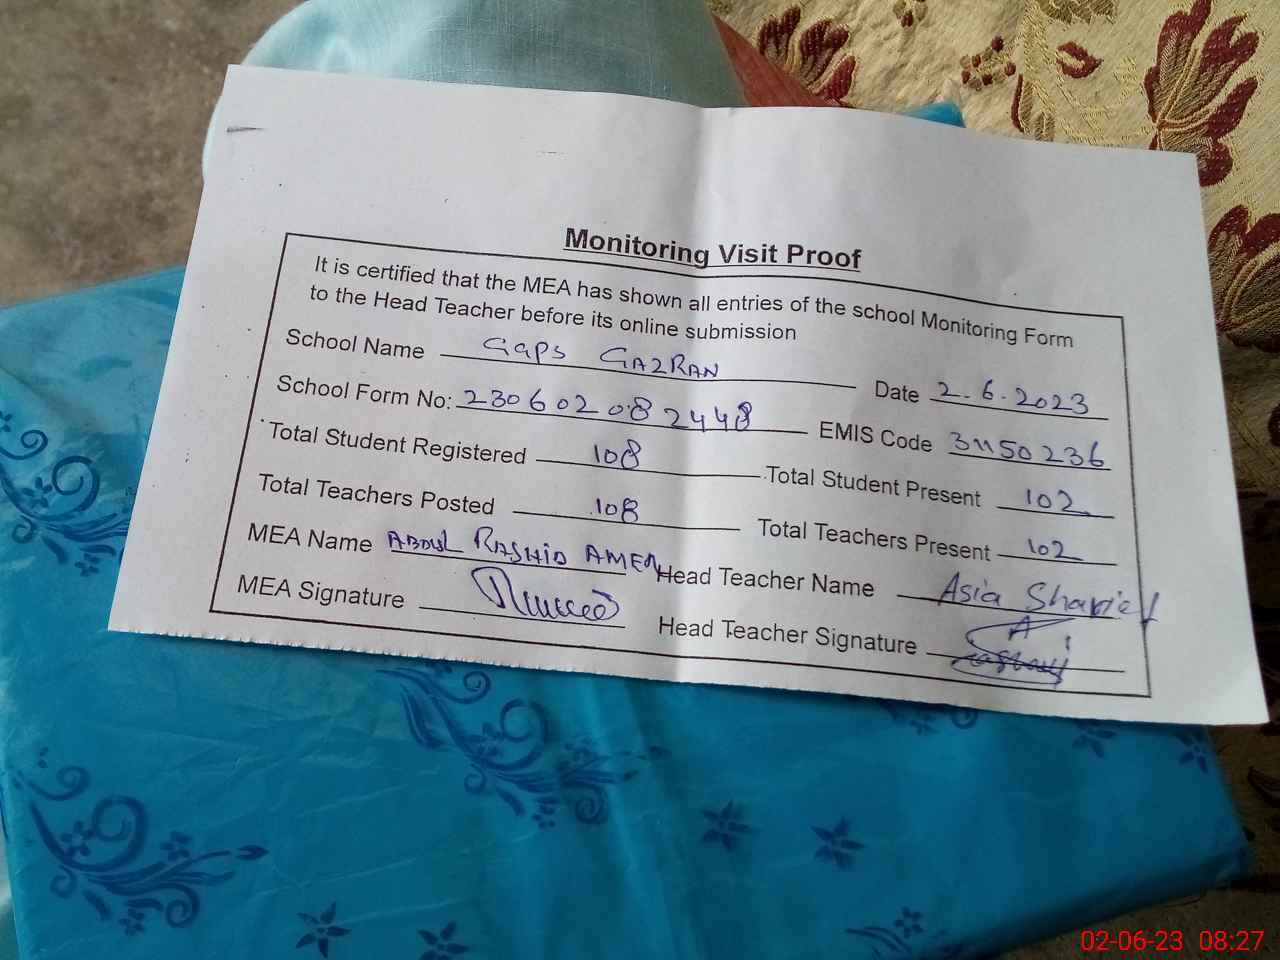 Monitoring Visit Proof
It is certified that the MEA has shown all entries of the school Monitoring Form
to the Head Teacher before its online submission
School Name GGPS GAZRAN Date 2.6.2023
School Form No: 230602082448 EMIS Code 31150236
Total Student Registered 108 Total Student Present 102
Total Teachers Posted 108 Total Teachers Present 102
MEA Name ABDUL RASHID AMEN Head Teacher Name Asia Sharief
MEA Signature Head Teacher Signature
02-06-23 08:27